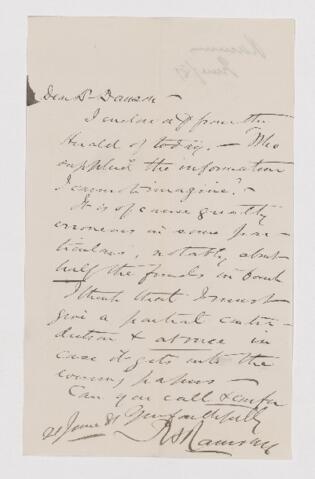 Dear Dr Dawson -
I enclose a from the
Herald of today. - Who
supplied the information
I cannot imagine? -
It is of course greatly
erroneous in some par-
ticulars, notably about
half the funds in bank
I think that I must
give a partial contra-
diction & at once in
case it gets into the
evening papers -
Can you call & confer
Yours faithfully
21 June 81